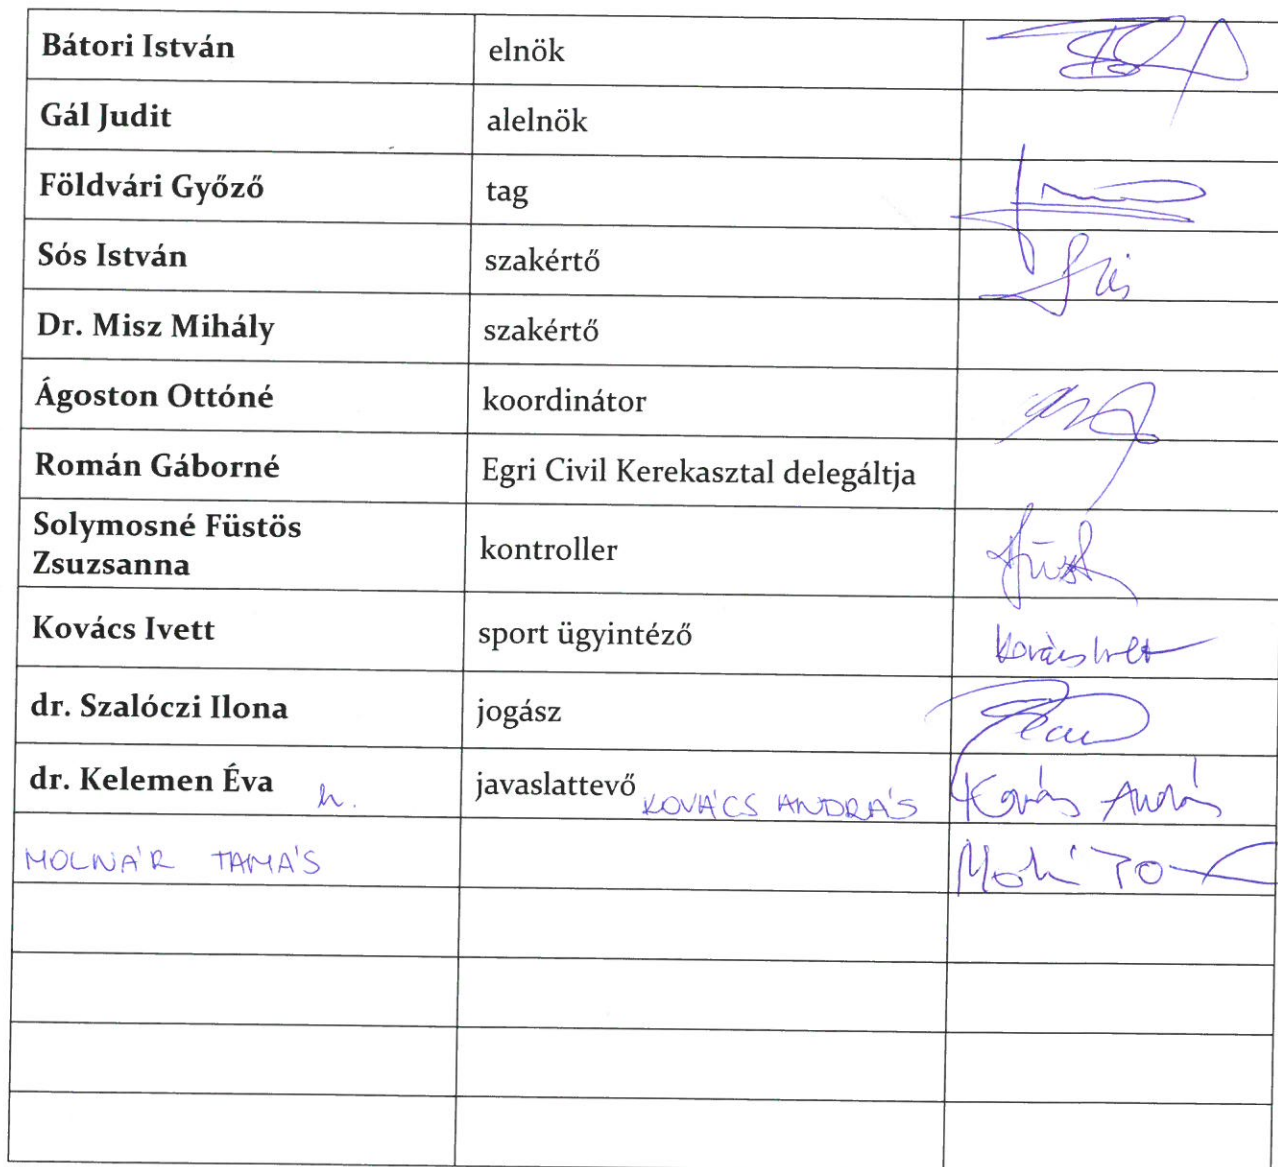 Bátori István elnök
Gál Judit alelnök
Földvári Győző tag
Sós István szakértő
Dr. Misz Mihály szakértő
Ágoston Ottóné koordinátor
Román Gáborné Egri Civil Kerekasztal delegáltja
Solymosné Füstös
Zsuzsanna kontroller
Kovács Ivett sport ügyintéző Kovács Ivett
dr. Szalóczi Ilona jogász
dr. Kelemen Éva h. javaslattevő KOVÁCS ANDRÁS Kovács András
MOLNÁR TAMÁS